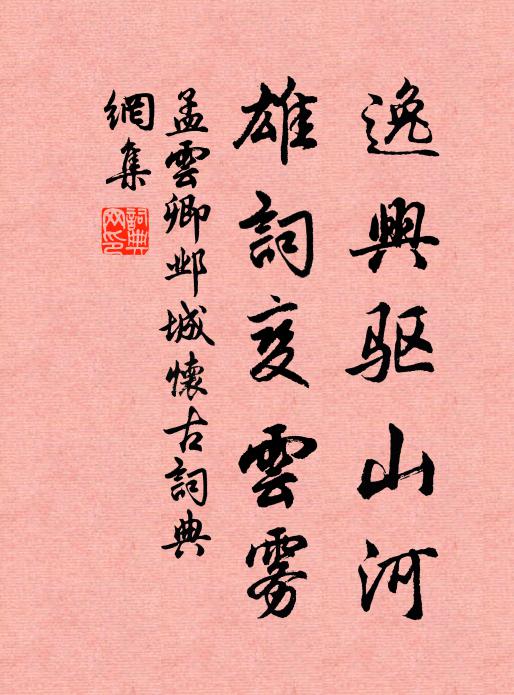 逸興驱山河
雄詞变雲雾
孟雲卿邺城懷古詞典
網集
詞典
网印